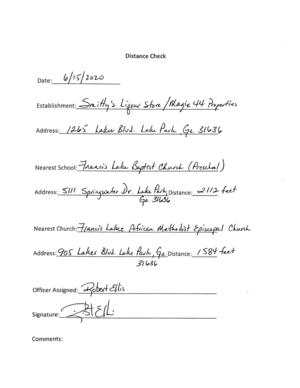 Distance Check
Date: 6/15/2020
Establishment: Smitty's Liquor Store / Magic 44 Properties
Address: 1265 Lakes Blvd. Lake Park, Ga 31636
Nearest School: Francis Lake Baptist Church (Preschool)
Address: 5111 Springwater Dr. Lake Park, Distance: 2112 feet
Ga. 31636
Nearest Church: Francis Lakes African Methodist Episcopal Church
Address: 905 Lakes Blvd. Lake Park, Ga Distance: 1584 feet
31636
Officer Assigned: Robert Ellis
Signature:
Comments: